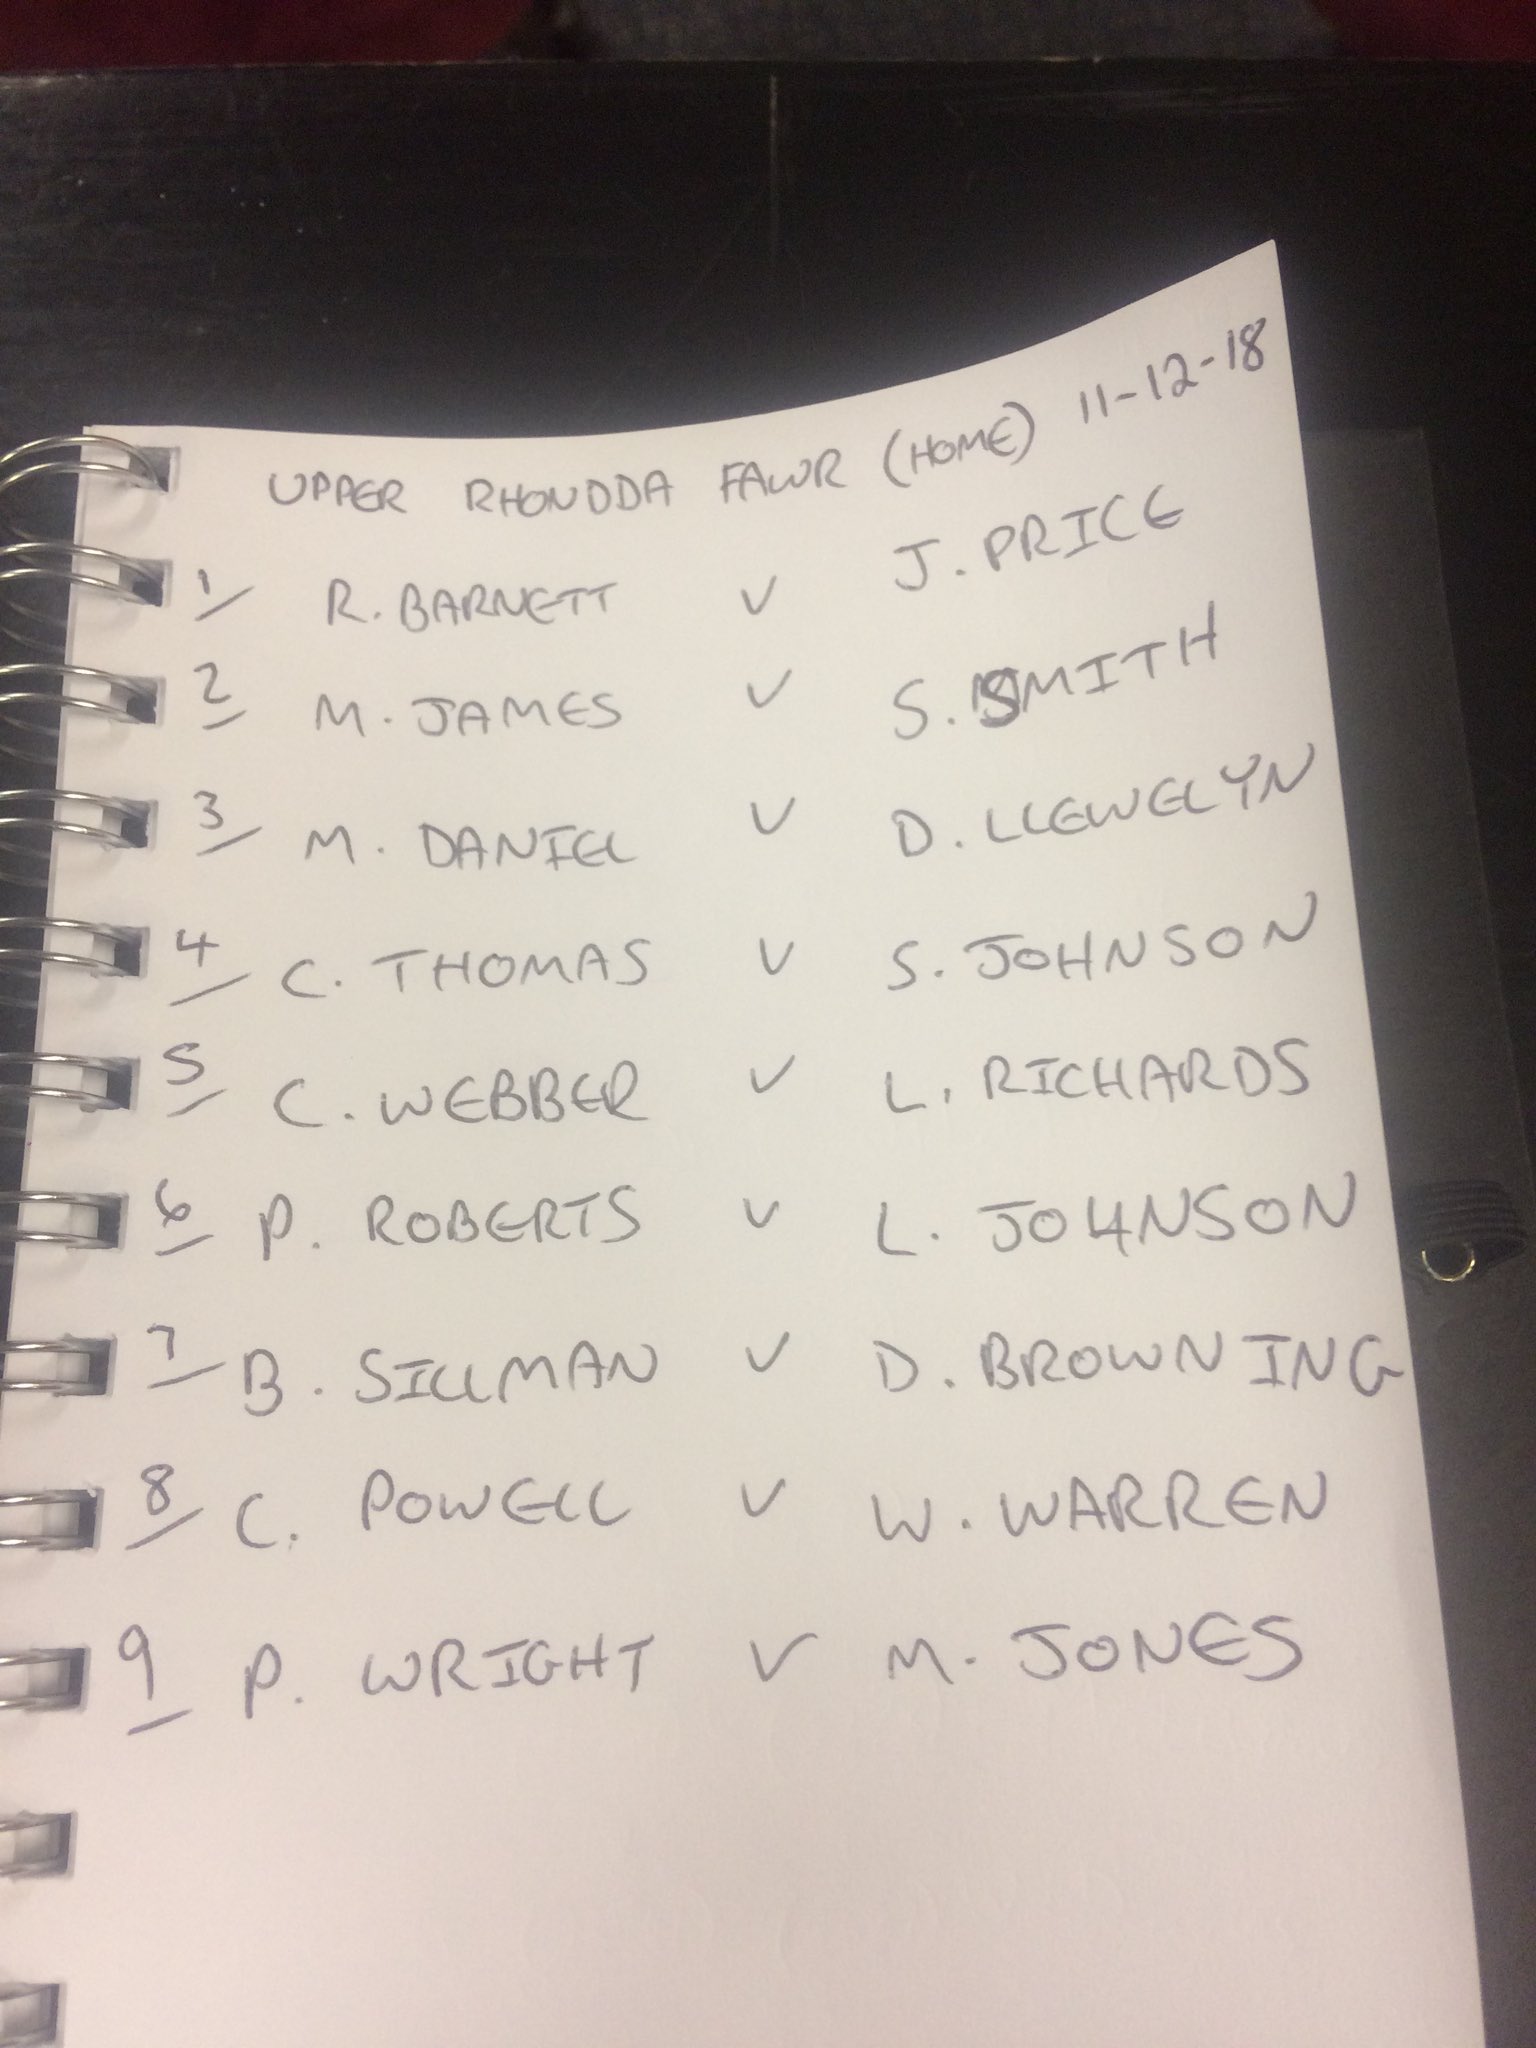 UPPER RHONDDA FAWR (HOME) 11-12-18
1 R. BARNETT V J. PRICE
2 M. JAMES V S. SMITH
3 M. DANIEL V D. LLEWELYN
4 C. THOMAS V S. JOHNSON
5 C. WEBBER V L. RICHARDS
6 P. ROBERTS V L. JOHNSON
7 B. SILLMAN V D. BROWNING
8 C. POWELL V W. WARREN
9 P. WRIGHT V M. JONES